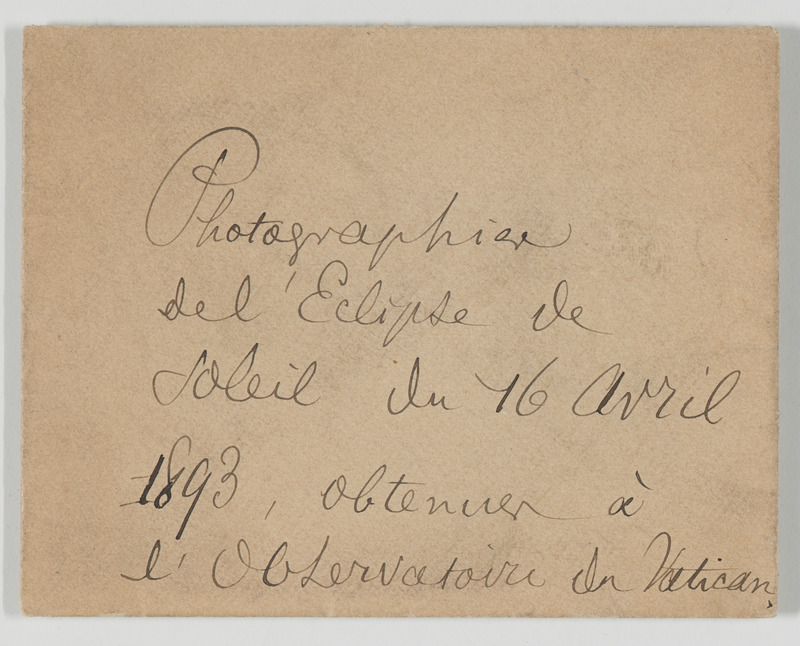 Photographies
de l'Eclipse de
Soleil du 16 Avril
1893, obtenues à
l'Observatoire du Vatican.